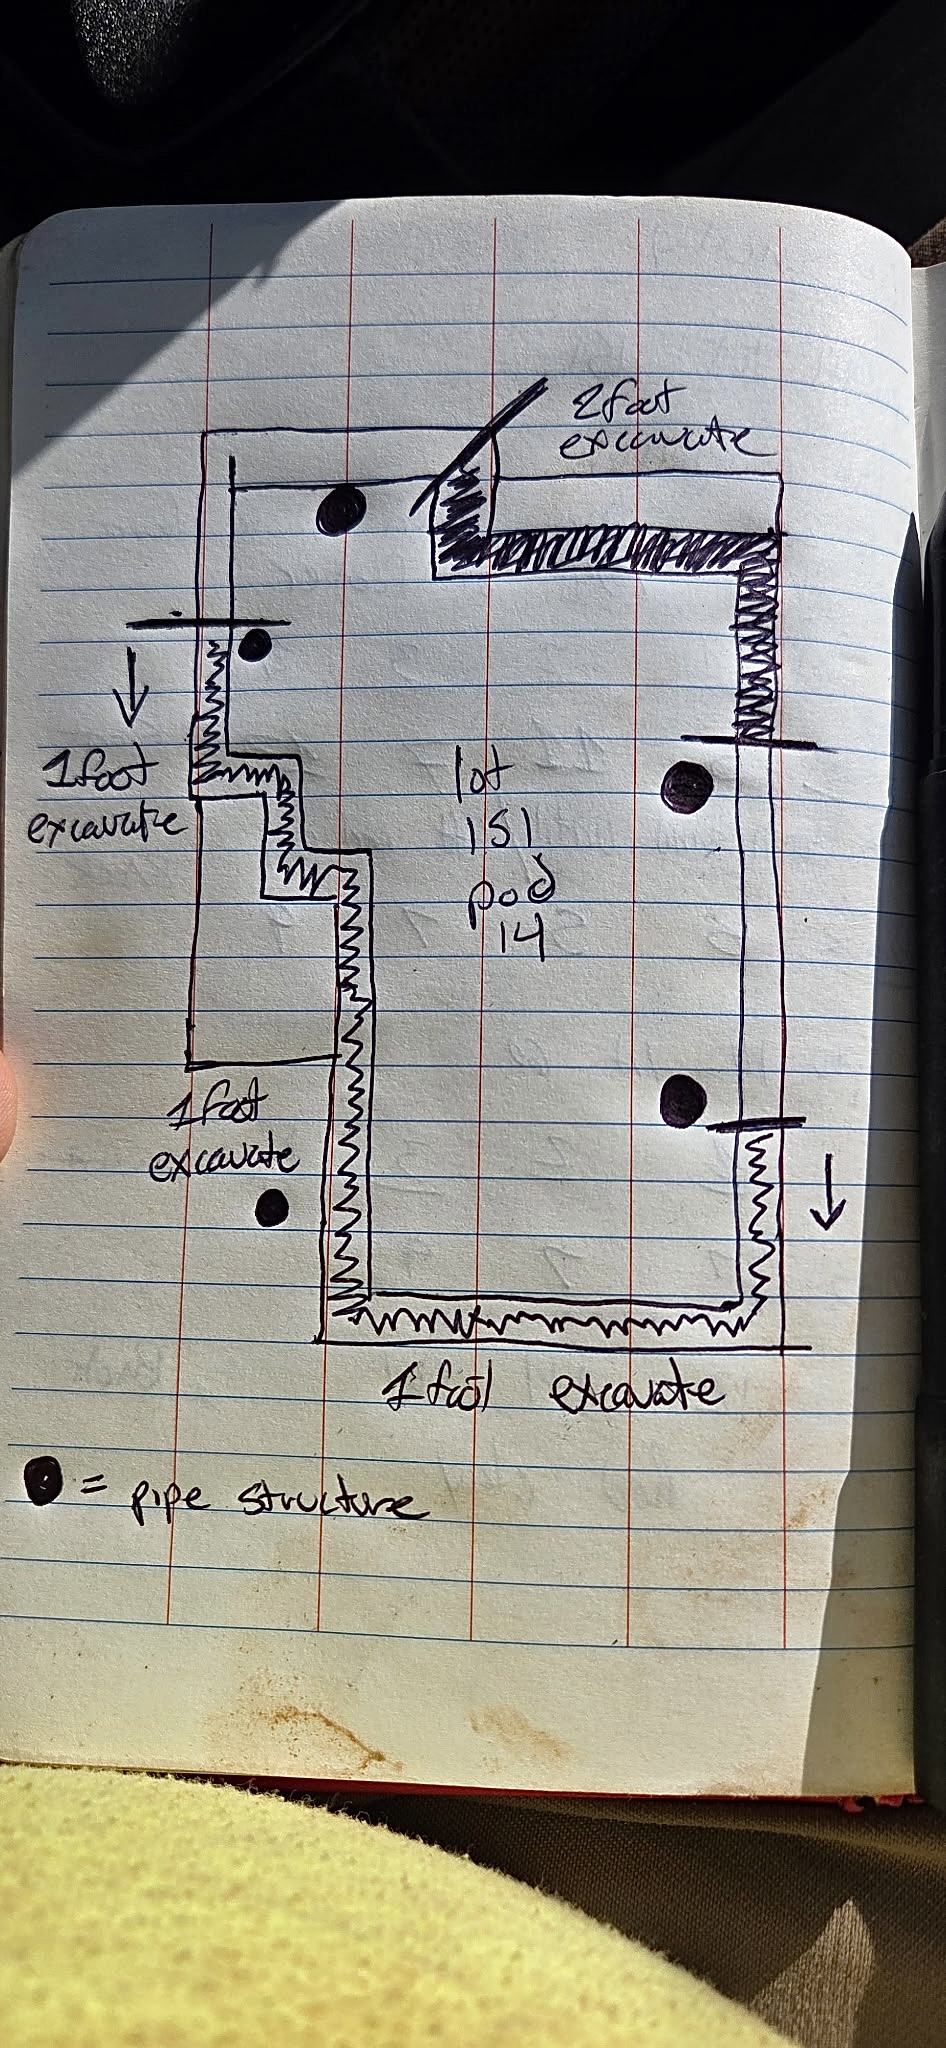 2 foot
excavate
1 foot
excavate
lot
151
pod
14
1 foot
excavate
1 foot excavate
= pipe structure